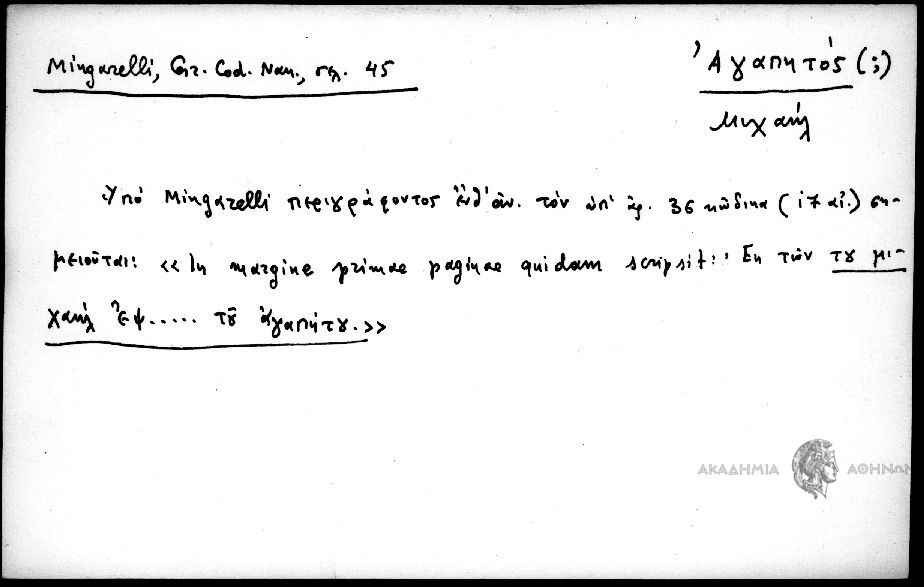 Mingarelli, Gr. Cod. Nan., σελ. 45
Ἀγαπητός (;)
Μιχαήλ
Ὑπό Mingarelli περιγράφοντος τόν ὑπ' ἀρ. 36 κώδικα (ιζ αἰ.) ση-
μειοῦται: «In margine primae paginae quidam scripsit: Ἐκ τῶν τȣ μι-
χαήλ ἐψ..... τȣ͂ ἀγαπήτȣ.»
ΑΚΑΔΗΜΙΑ ΑΘΗΝΩΝ